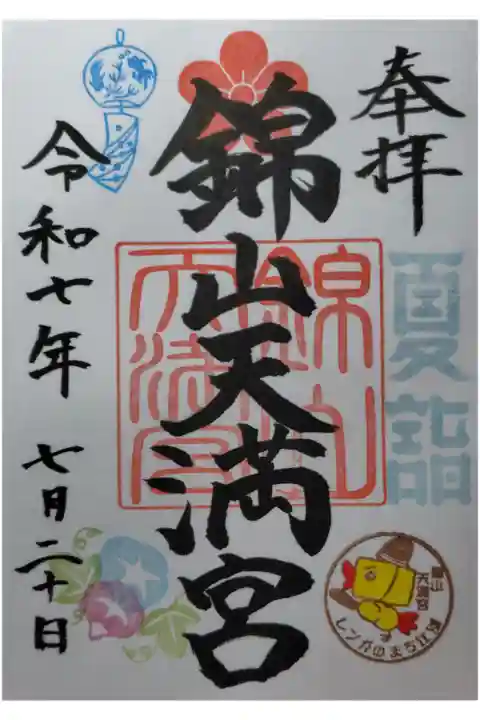 奉拝
夏詣
錦山天満宮
錦山
天満宮
令和七年 七月二十日
錦山
天満宮
レンガのまち江別